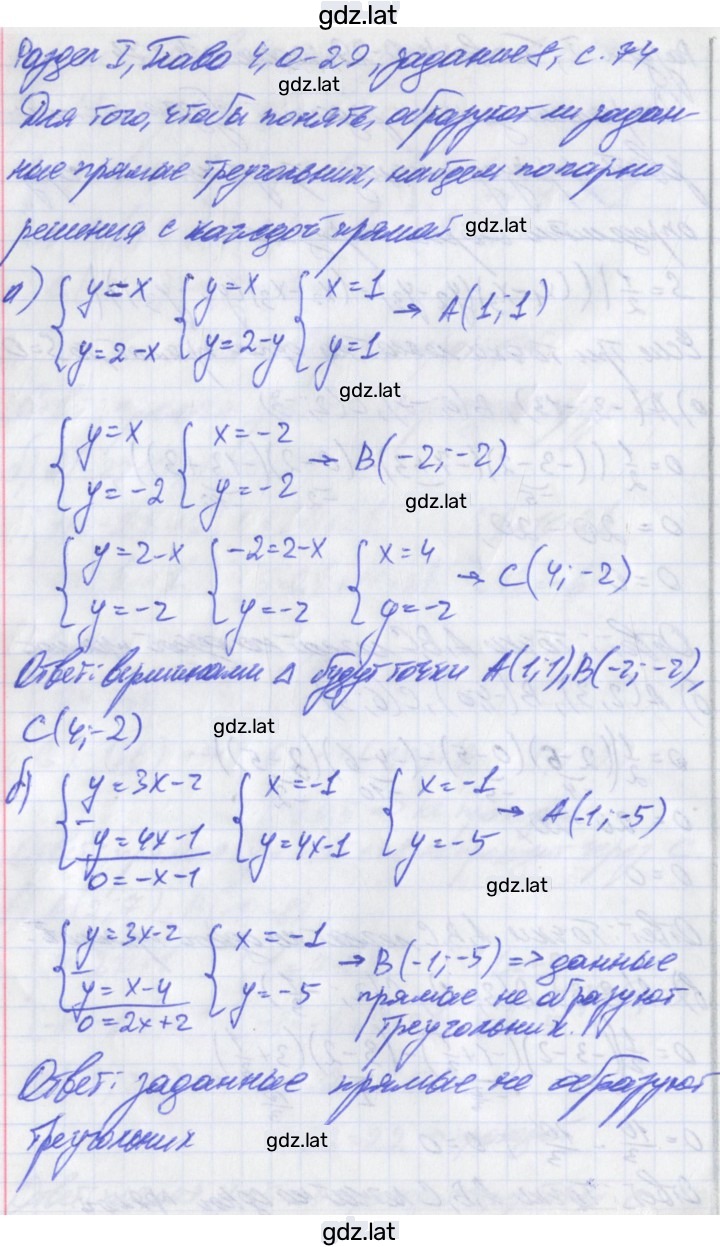 gdz.lat
Раздел I, Глава 4, 0-29, задание 8, с. 74
gdz.lat
Для того, чтобы понять, образуют ли задан-
ные прямые треугольник, найдем попарно
решения с каждой прямой gdz.lat
а) { y = x { y = x { x = 1 → A(1; 1)
{ y = 2 - x { y = 2 - y { y = 1
gdz.lat
{ y = x { x = -2 → B(-2; -2)
{ y = -2 { y = -2
gdz.lat
{ y = 2 - x { -2 = 2 - x { x = 4 → C(4; -2)
{ y = -2 { y = -2 { y = -2
Ответ: вершинами Δ будут точки A(1; 1), B(-2; -2),
C(4; -2) gdz.lat
б) { y = 3x - 2 { x = -1 { x = -1 → A(-1; -5)
{ - y = 4x - 1 { y = 4x - 1 { y = -5
0 = -x - 1
gdz.lat
{ y = 3x - 2 { x = -1 → B(-1; -5) => данные
{ - y = x - 4 { y = -5 прямые не образуют
0 = 2x + 2 треугольник.
Ответ: заданные прямые не образуют
треугольник gdz.lat
gdz.lat